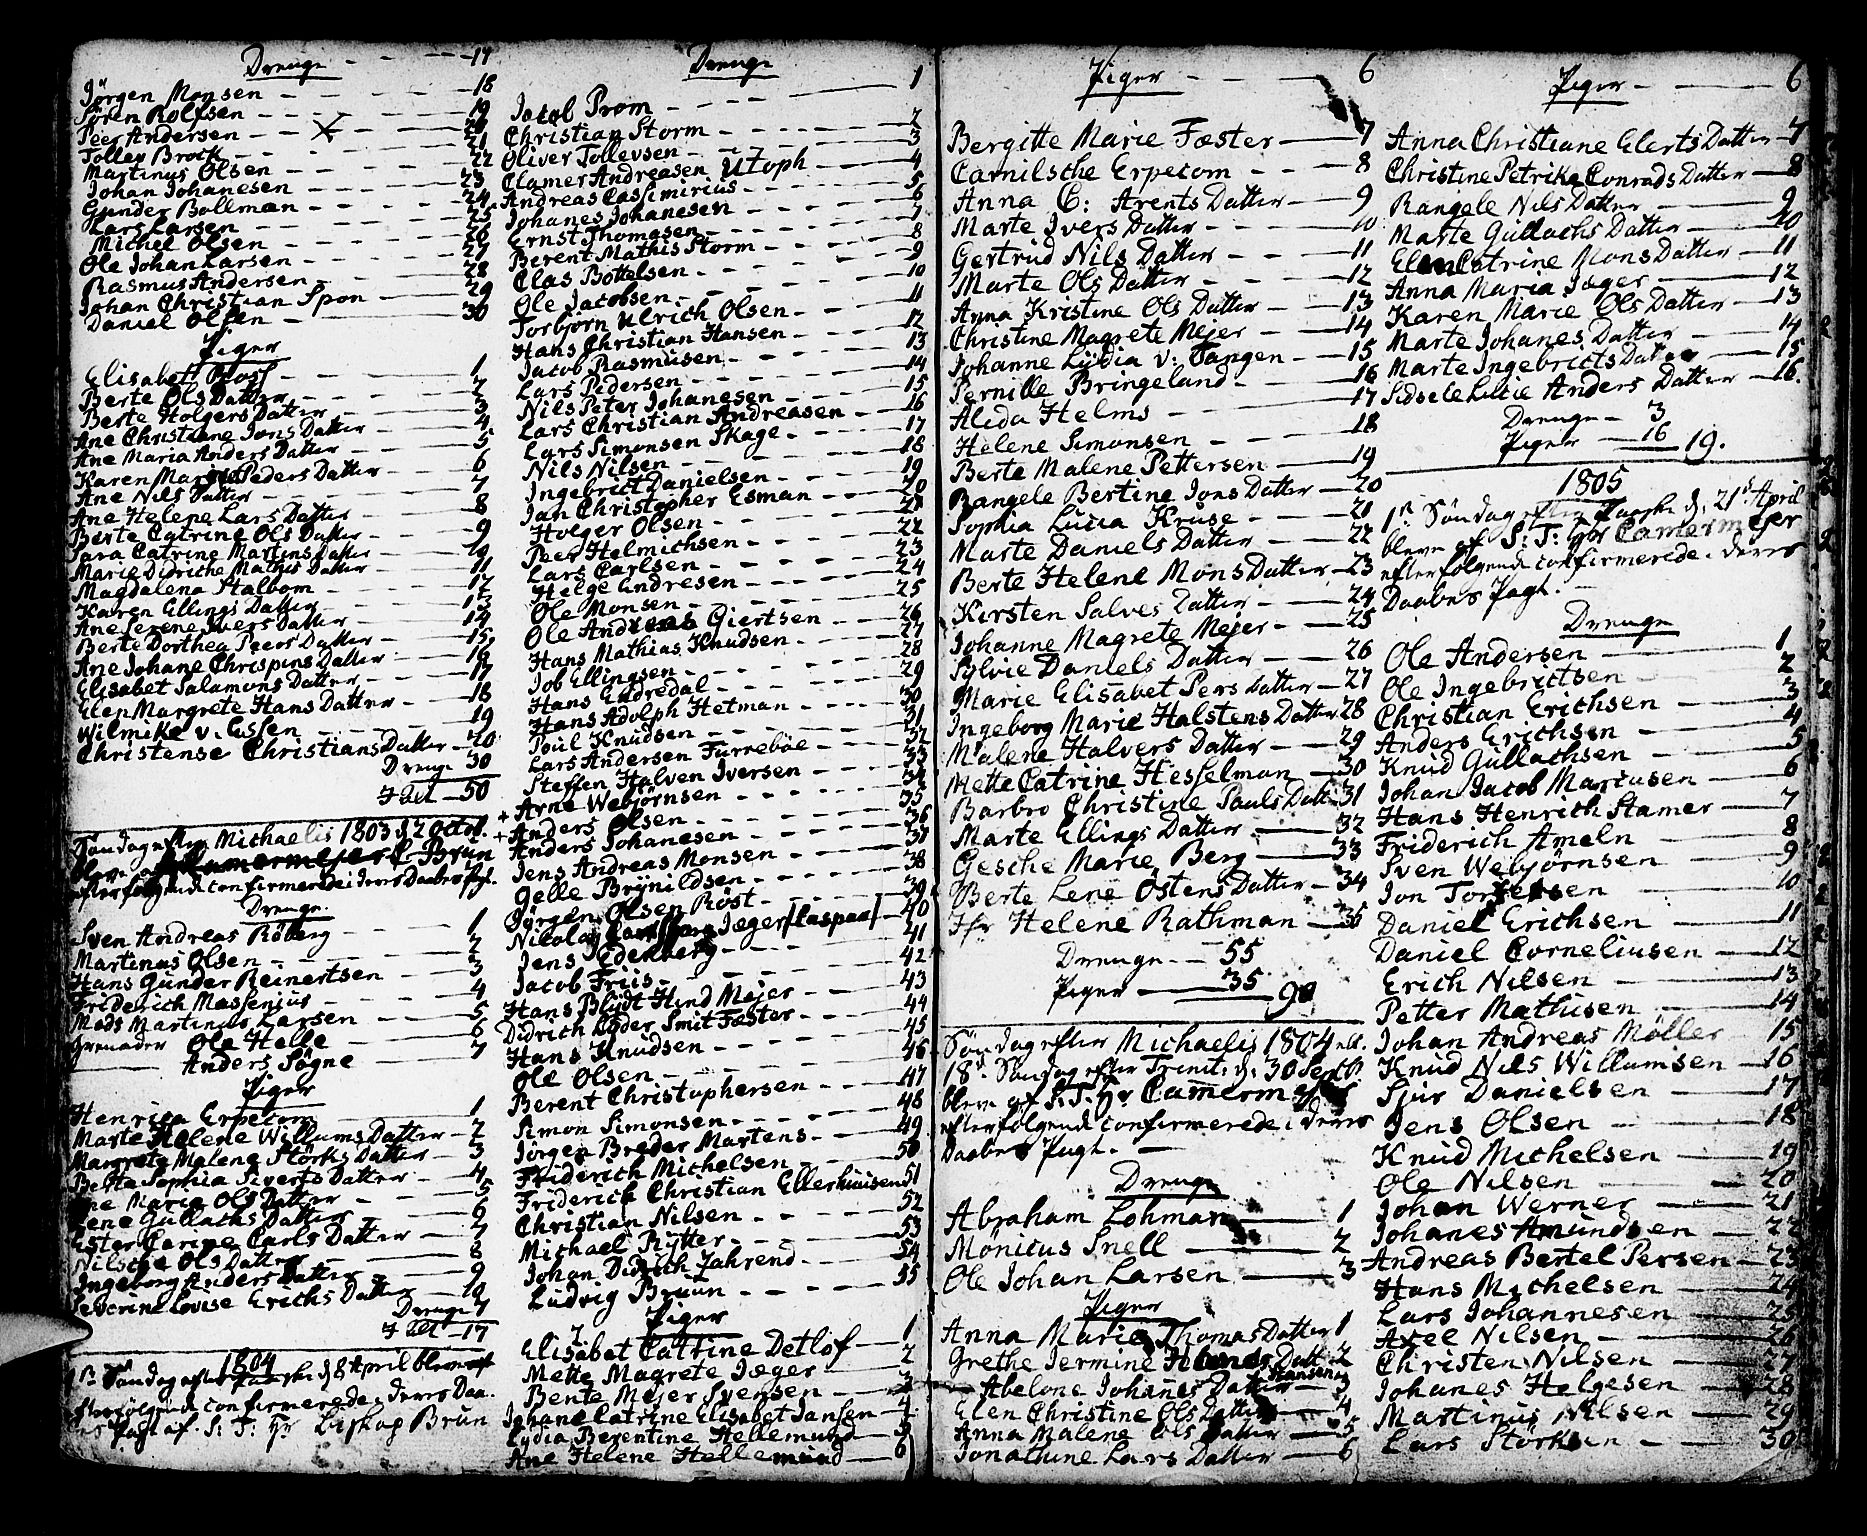 Drenge - - - 17
Jörgen Monsen - - - 18
Sören Rolfsen - - - 19
Peer Andersen - - X - 20
Tollev Brock - - - 21
Martinus Olsen - - - 22
Johan Johanesen - - - 23
Gunder Bollman - - - 24
Lars Larsen - - - 25
Michel Olsen - - - 26
Ole Johan Larsen - - - 27
Rasmus Andersen - - - 28
Johan Christian Spon - - 29
Daniel Olsen - - - 30
Piger
Elisabett - - - 1
Berte Ols Datter - - - 2
Berte Holgers Datter - - - 3
Ane Christiane Jons Datter - - 4
Ane Maria Anders Datter - - 5
Karen Peders Datter - - 6
Ane Nils Datter - - - 7
Ane Helene Lars Datter - - 8
Berte Catrine Ols Datter - - 9
Sara Catrine Martins Datter - - 10
Marie Didriche Mathis Datter - - 11
Magdalena Stalbom - - - 12
Karen Ellings Datter - - 13
Ane Serene Ivers Datter - - 14
Berte Dorthea Peers Datter - - 15
Ane Johane Chrispins Datter - - 16
Elisabet Salamons Datter - - 17
Elen Margrete Hans Datter - - 18
Wilmike v. Essen - - - 19
Christense Christians Datter - 20
Drenge 30
I alt - 50
Søndag efter Michaelis 1803 d 2 Octob.
blev af Brun
efterfølgende confirmerede i deres Daabes Pagt.
Drenge.
Sven Andreas Röberg - - 1
Martinus Olsen - - - 2
Hans Gunder Reinertsen - - 3
Friderich Massenius - - - 4
Mads Martinus Larsen - - 5
Grenader Ole Helle - - 6
Anders Sögne - - 7
Piger
Henrica Erpecom - - 1
Marte Helene Willums Datter - 2
Margrete Malene Störks Datter - 3
Berta Sophia Siverts Datter - 4
Ane Maria Ols Datter - - 5
Lene Gullachs Datter - - 6
Ester Carls Datter - - 7
Nilsche Ols Datter - - 8
Ingeborg Anders Datter - - 9
Severine Lovise Erichs Datter - 10
Drenge 7
I alt - 17
1804
1te Søndag efter Paaske d. 8 April bleve
efterfølgende confirmerede i deres Daa.
bes Pagt af S: T: Hr Biskop Brun
Drenge
Jacob Prom - - - 1
Christian Storm - - - 2
Oliver Tollevsen - - - 3
Clamer Andreasen Utoph - 4
Andreas Cassimirius - - - 5
Johanes Johanesen - - - 6
Ernst Thomasen - - - 7
Berent Mathis Storm - - - 8
Clas Bottolsen - - - 9
Ole Jacobsen - - - 10
Torbjorn Ulrich Olsen - - 11
Hans Christian Hansen - - 12
Jacob Rasmusen - - - 13
Lars Pedersen - - - 14
Nils Peter Johanesen - - 15
Lars Christian Andreasen - - 16
Lars Simonsen Skage - - 17
Nils Nilsen - - - 18
Ingebrict Danielsen - - 19
Jan Christopher Esman - - 20
Holger Olsen - - - 21
Peer Helmichsen - - - 22
Lars Carlsen - - - 23
Helge Endresen - - - 24
Ole Monsen - - - 25
Ole Andreas Giertsen - - 26
Hans Mathias Knudsen - - 27
Job Ellingsen - - - 28
Hans Endredal - - - 29
Hans Adolph Hetman - - 30
Poul Knudsen - - - 31
Lars Andersen Furreböe - - 32
Steffen Halven Iversen - - 33
+ Arne Webjörnsen - - - 34
+ Anders Olsen - - - 35
Anders Johanesen - - - 36
Jens Andreas Monsen - - 37
Gelle Brynildsen - - - 38
Jörgen Olsen Röst - - - 39
Nikolay Jæger /Caspaa/ - 40
Jens Edenberg - - - 41
Jacob Friis - - - 42
Hans Blydt Hind Mejer - - 43
Didrich Lyder Smit Fæster - - 44
Hans Knudsen - - - 45
Ole Olsen - - - 46
Berent Christophersen - - 47
Simon Simonsen - - - 48
Jörgen Breder Martens - - 49
Friderich Michelsen - - 50
Friderich Christian Ellerhuusen 51
Christian Nilsen - - - 52
Michael Rutter - - - 53
Johan Didrich Fahrend - - 54
Ludvig Bruun - - - 55
Piger
Elisabet Catrine Detlof - 1
Mette Magrete Jæger - - 2
Bente Mejer Svensen - - 3
Johane Catrine Elisabet Jansen - 4
Lydia Berentine Hellemund - 5
Ane Helene Hellemund - 6
Piger - - - 6
Bergitte Marie Fæster - 7
Carnilsche Erpecom - - 8
Anna C: Arents Datter - 9
Marte Ivers Datter - - - 10
Gertrud Nils Datter - - 11
Marte Ols Datter - - - 12
Anna Kristine Ols Datter - 13
Christine Magrete Mejer - 14
Johanne Lydia v: Tangen - 15
Pernille Bringeland - - 16
Alida Helms - - - 17
Helene Simonsen - - - 18
Berte Malene Pettersen - 19
Rangele Bertine Jons Datter - 20
Sophia Lucia Kruse - - 21
Marte Daniels Datter - - 22
Berte Helene Mons Datter - 23
Kirsten Salves Datter - - 24
Johanne Magrete Mejer - 25
Sylvie Daniels Datter - - 26
Marie Elisabet Pers Datter - 27
Ingeborg Marie Halstens Datter 28
Malene Halvers Datter - - 29
Mette Catrine Hesselman - 30
Barbro Christine Pauls Datter 31
Marte Ellings Datter - - 32
Gesche Marie Berg - - 33
Berte Lene Östens Datter - 34
Jfr Helene Rathman - 35
Drenge - - 55
Piger - - 35
90
Søndag efter Michaelis 1804 ell.
18de Søndag efter Trinit: d. 30 Septbr
bleve af S. T. Hr Camermejer
efterfølgende confirmerede i deres
Daabes Pagt.
Drenge
Abraham Lohman - 1
Mönicus Snell - 2
Ole Johan Larsen - 3
Piger
Anna Marie Thomas Datter 1
Grethe Jermine Datter 2
Abelone Johanes Datter Hansen 3
Elen Christine Ols Datter - 4
Anna Malene Ols Datter - 5
Jonathine Lars Datter - 6
Piger - - - 6
Anna Christiane Elerts Datter - 7
Christine Petrike Conrads Datter - 8
Rangele Nils Datter - 9
Marte Gullachs Datter - 10
Elen Catrine Mons Datter - 11
Anna Maria Jæger - 12
Karen Marie Ols Datter - 13
Marte Johanes Datter - 14
Marte Ingebricts Datter - 15
Sidsele Lucie Anders Datter - 16.
Drenge - 3
Piger - 16 19.
1805
1te Søndag efter Paaske d. 21de April
bleve af S: T: Hr Camermejer
efterfølgende confirmerede i deres
Daabes Pagt.
Drenge
Ole Andersen - 1
Ole Ingebrictsen - 2
Christian Erichsen - 3
Anders Erichsen - 4
Knud Gullachsen - 5
Johan Jacob Marcusen - 6
Hans Henrich Stamer - 7
Friderich Ameln - 8
Sven Webjörnsen - 9
Jon - 10
Daniel Erichsen - 11
Daniel Corneliusen - 12
Erich Nilsen - 13
Petter Mathisen - 14
Johan Andreas Möller 15
Knud Nils Willumsen - 16
Sjur Danielsen - 17
Jens Olsen - 18
Knud Michelsen - 19
Ole Nilsen - 20
Johan Werner - 21
Johanes Amundsen - 22
Andreas Bertel Persen - 23
Hans Michelsen - 24
Lars Johannesen - 25
Axel Nilsen - 26
Christen Nilsen - 27
Johanes Helgesen - 28
Martinus Nilsen - 29
Lars Störksen - 30